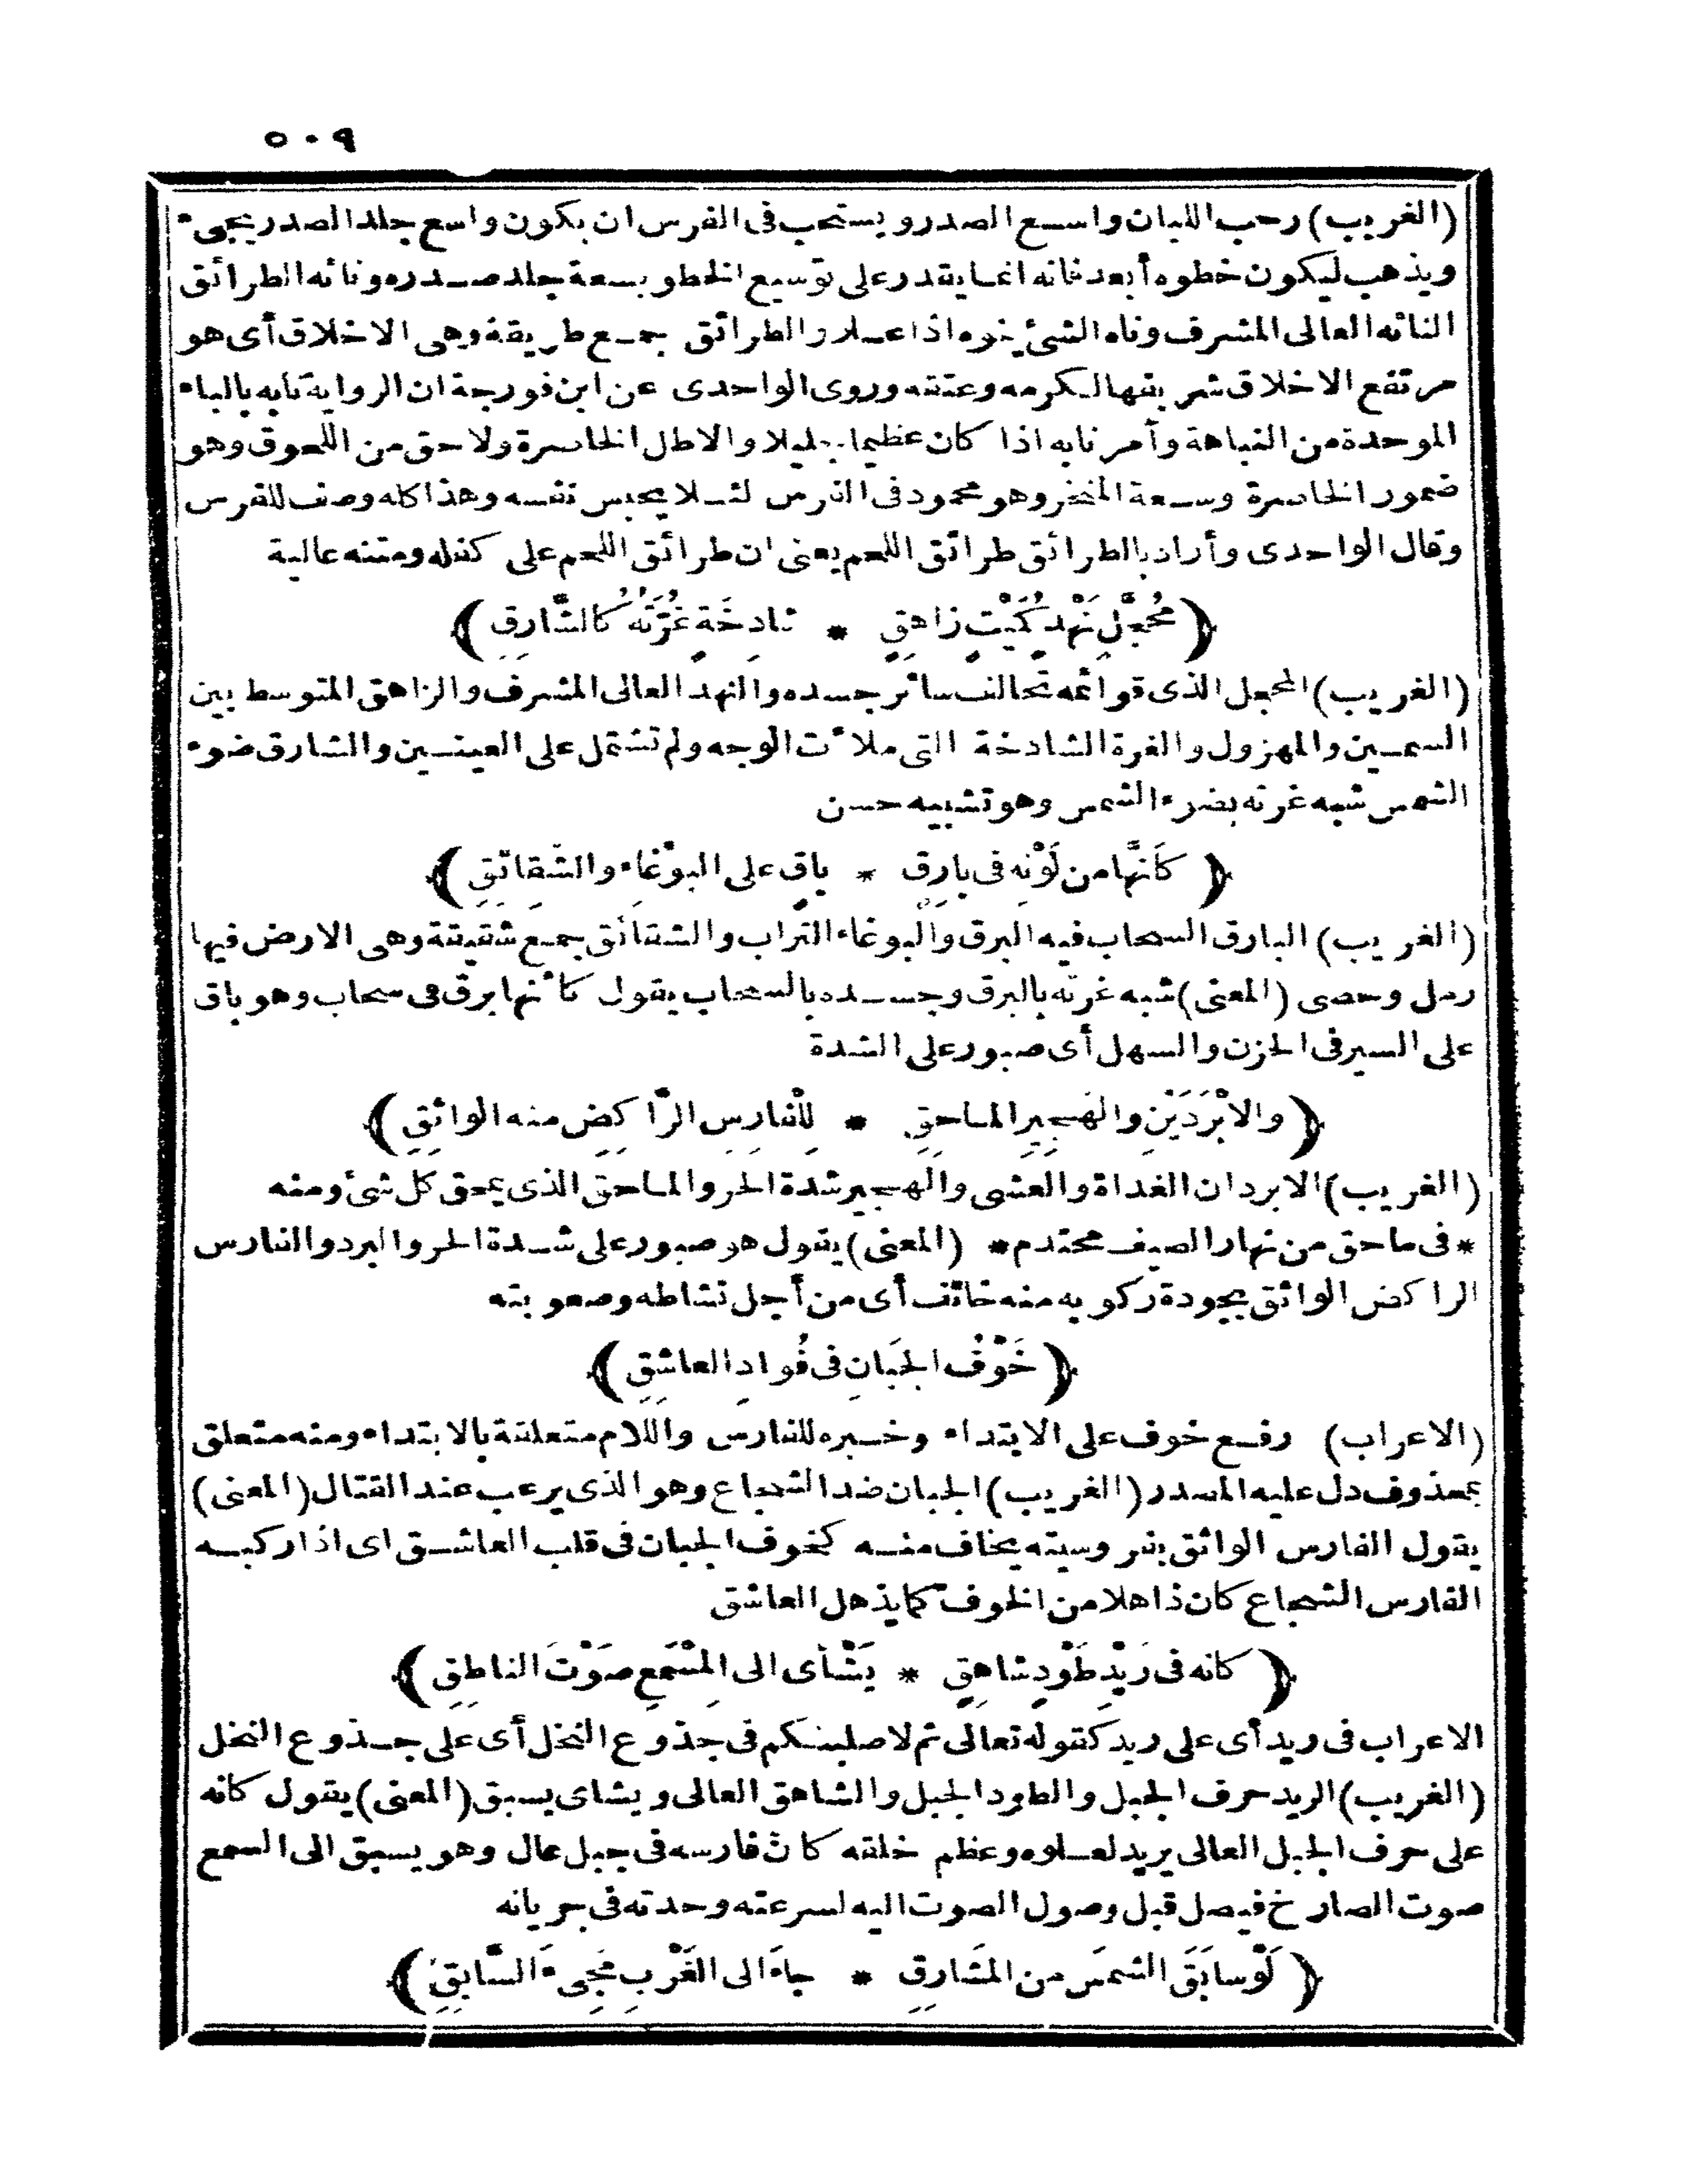 ٥٠٩
(الغريب) رحب اللبان واسع الصدر ويستحب فى الفرس ان يكون واسع جلد الصدر يجىء
ويذهب ليكون خطوه أبعد فانه انما يقدر على توسيع الخطو بسعة جلد صدره ونائه الطرائق
النائه العالى المشرف وناه الشئ ينوه اذا علا والطرائق جمع طريقة وهى الاخلاق أى هو
مرتفع الاخلاق شريفها لكرمه وعتقه وروى الواحدى عن ابن فورجة ان الرواية نابه بالباء
الموحدة من النباهة وأمر نابه اذا كان عظيما جليلا والاطل الخاصرة ولاحق من اللحوق وهو
ضمور الخاصرة وسعة المنخر وهو محمود فى الفرس لئلا يحبس نفسه وهذا كله وصف للفرس
وقال الواحدى وأراد بالطرائق طرائق اللحم يعنى ان طرائق اللحم على كفله ومتنه عالية
(مُحَجَّلٍ نَهْدٍ كُمَيْتٍ زاهِقٍ * شادِخَةٍ غُرَّتُهُ كالشَّارِقِ)
(الغريب) المحجل الذى قوائمه تخالف سائر جسده والنهد العالى المشرف والزاهق المتوسط بين
السمين والمهزول والغرة الشادخة التى ملأت الوجه ولم تشتمل على العينين والشارق ضوء
الشمس شبه غرته بضوء الشمس وهو تشبيه حسن
(كَأنَّها من لَوْنِه فى بارِقِ * باقٍ على البَوْغاءِ والشَّقائِقِ)
(الغريب) البارق السحاب فيه البرق والبوغاء التراب والشقائق جمع شقيقة وهى الارض فيها
رمل وحصى (المعنى) شبه غرته بالبرق وجسده بالسحاب يقول كأنها برق فى سحاب وهو باق
على السير فى الحزن والسهل أى صبور على الشدة
(والابْرَدَيْنِ والهَجِيرِ الماحِقِ * لِلْفارِسِ الرَّاكِضِ منه الواثِقِ)
(الغريب) الابردان الغداة والعشى والهجير شدة الحر والماحق الذى يمحق كل شئ ومنه
* فى ماحق من نهار الصيف محتدم * (المعنى) يقول هو صبور على شدة الحر والبرد والفارس
الراكض الواثق بجودة ركوبه منه خائف أى من أجل نشاطه وصعوبته
(خَوْفُ الجَبانِ فى فُوادِ العاشِقِ)
(الاعراب) رفع خوف على الابتداء وخبره للفارس واللام متعلقة بالابتداء ومنه متعلق
بمحذوف دل عليه المصدر (الغريب) الجبان ضد الشجاع وهو الذى يرعب عند القتال (المعنى)
يقول الفارس الواثق بفروسيته يخاف منه كخوف الجبان فى قلب العاشق اى اذا ركبه
الفارس الشجاع كان ذاهلا من الخوف كما يذهل العاشق
(كانه فى رَيْدِ طَوْدٍ شاهِقٍ * يَشْأى الى المِسْمَعِ صَوْتَ الناطِقِ)
الاعراب فى ريد أى على ريد كقوله تعالى ثم لاصلبنكم فى جذوع النخل أى على جذوع النخل
(الغريب) الريد حرف الجبل والطود الجبل والشاهق العالى ويشاى يسبق (المعنى) يقول كانه
على حرف الجبل العالى يريد لعلوه وعظم خلقه كان فارسه فى جبل عال وهو يسبق الى السمع
صوت الصارخ فيصل قبل وصول الصوت اليه لسرعته وحدته فى جريانه
(لَوْ سابَقَ الشمسَ من المَشارِقِ * جاءَ الى الغَرْبِ مَجِىءَ السَّابِقِ)